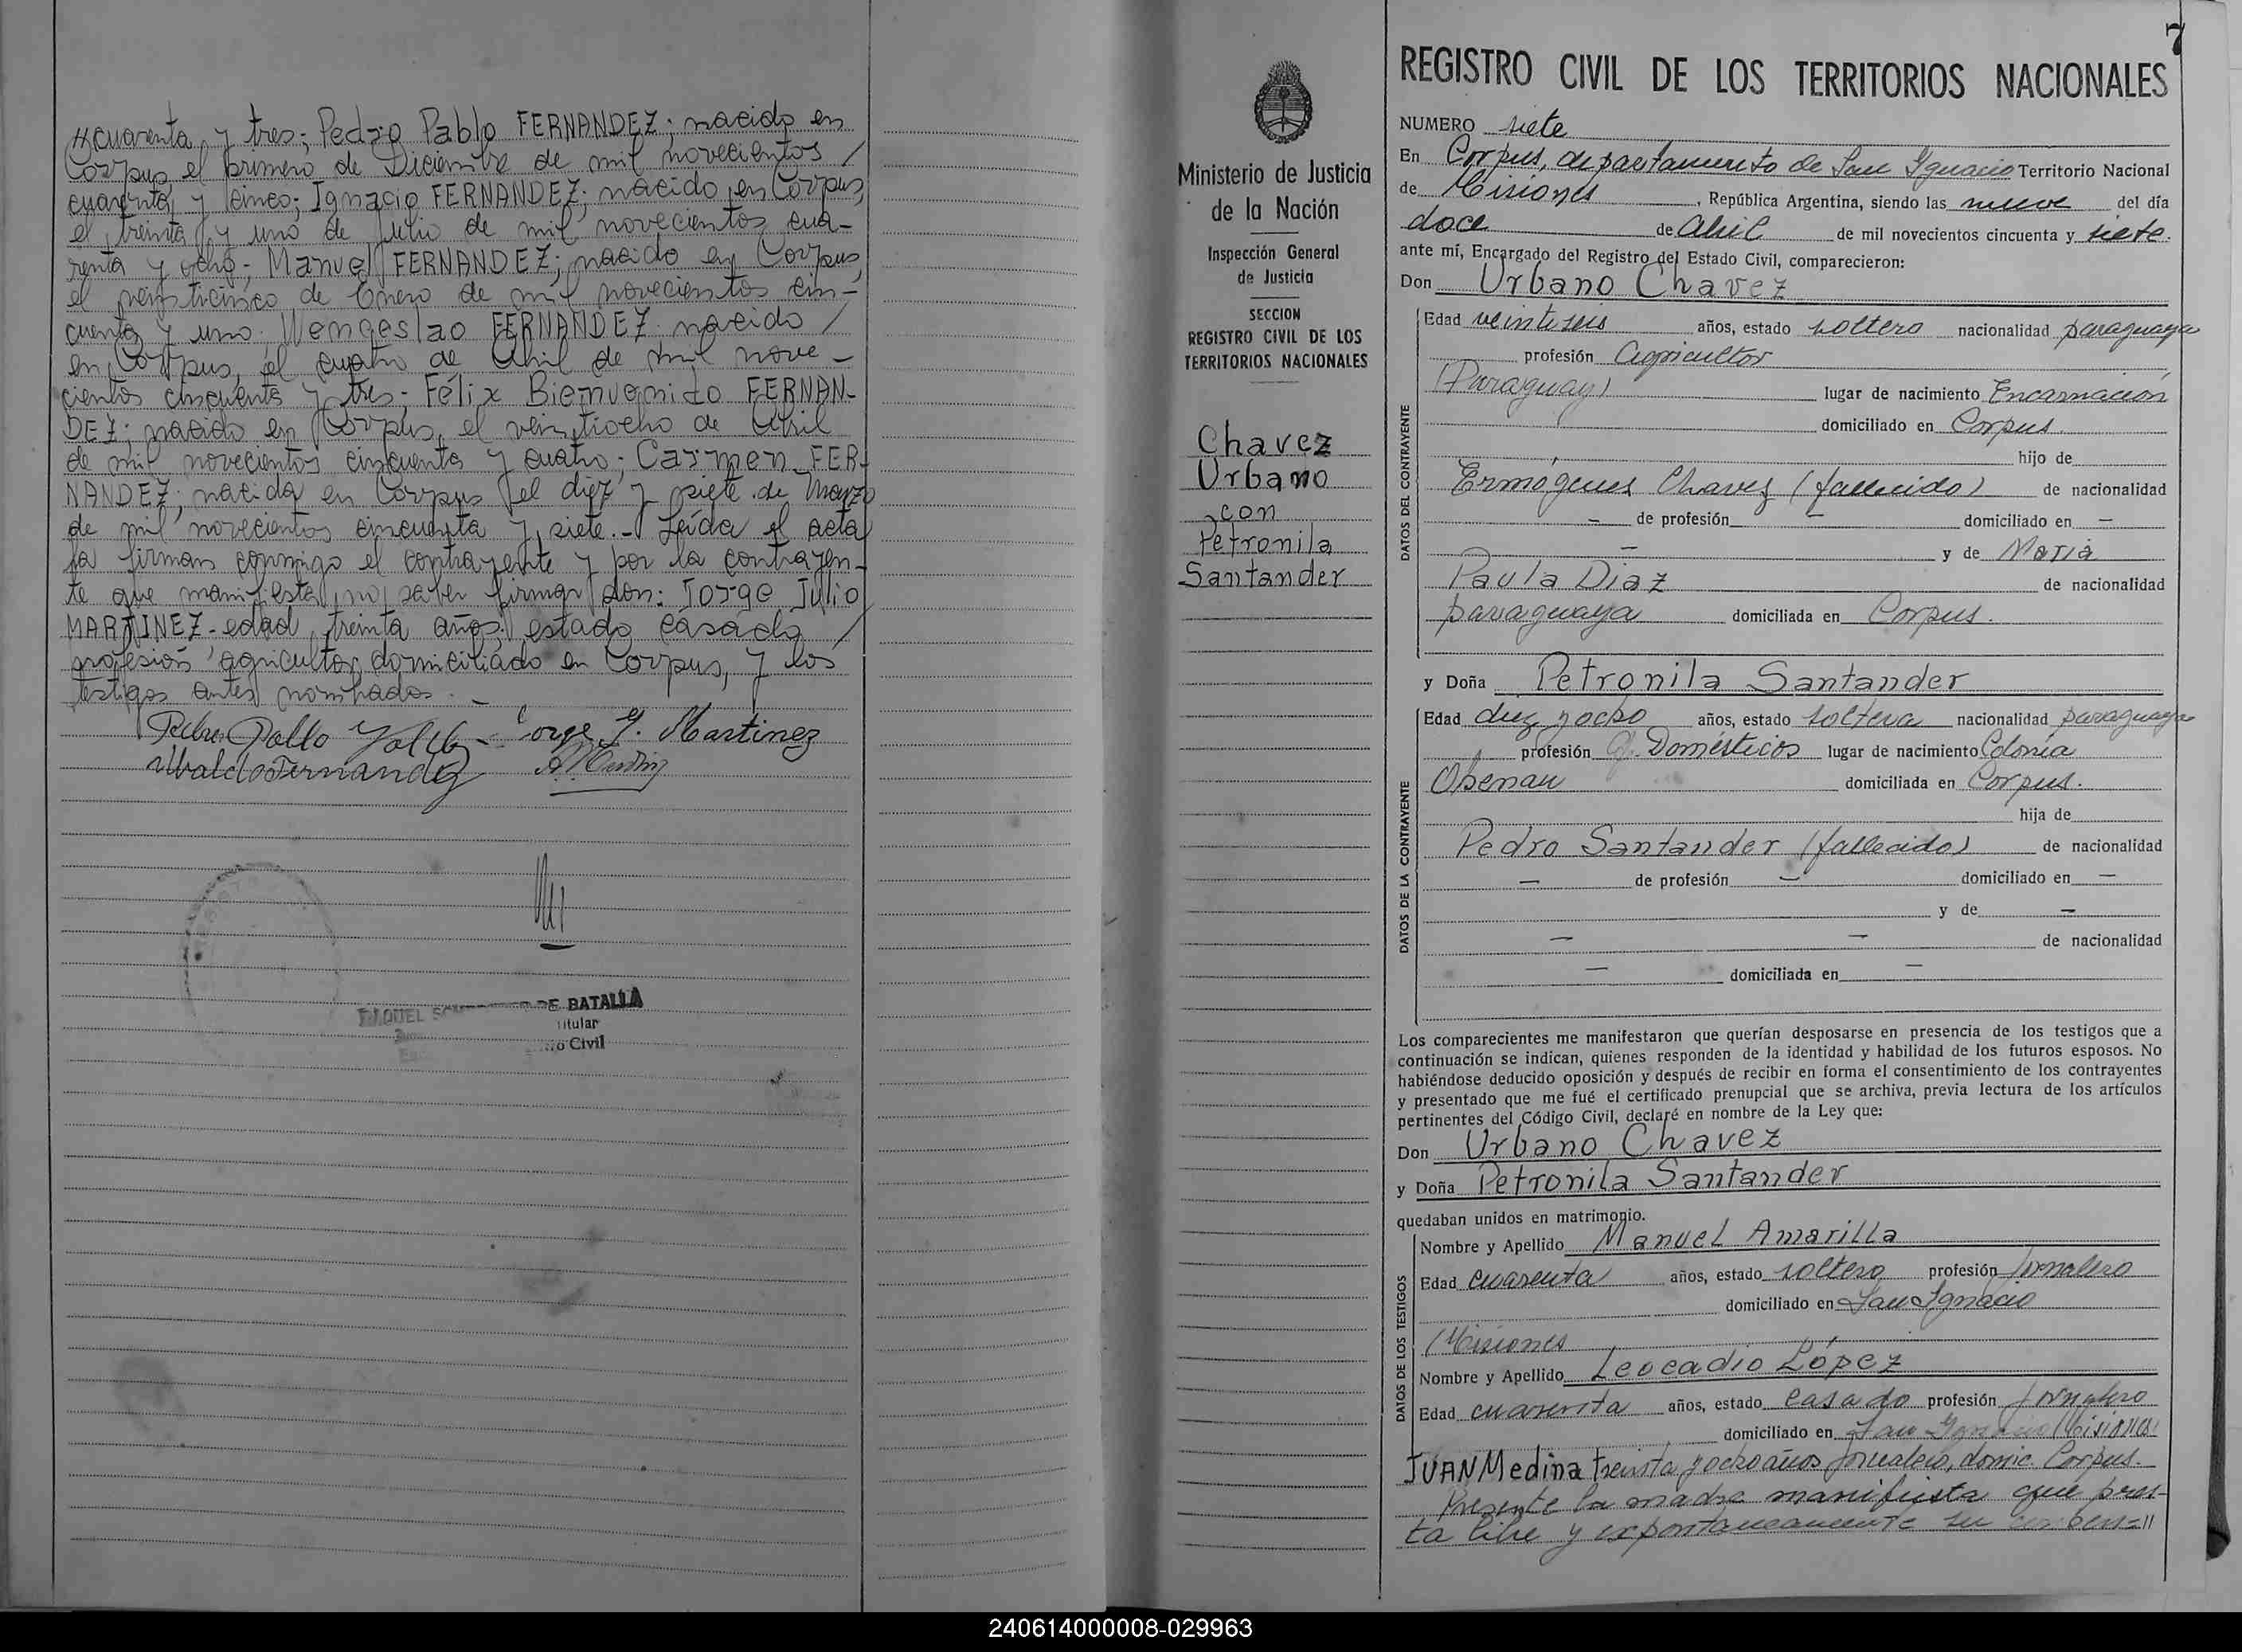 cuarenta y tres; Pedro Pablo FERNANDEZ; nacido en
Corpus, el primero de Diciembre de mil novecientos /
cuarenta y cinco; Ignacio FERNANDEZ; nacido en Corpus,
el treinta y uno de Julio de mil novecientos cua-
renta y ocho; Manuel FERNANDEZ; nacido en Corpus,
el veinticinco de Enero de mil novecientos cin-
cuenta y uno. Wengeslao FERNANDEZ. nacido /
en Corpus, el cuatro de Abril de mil nove-
cientos cincuenta y tres; Félix Bienvenido FERNAN-
DEZ; nacido en Corpus, el veintiocho de Abril
de mil novecientos cincuenta y cuatro; Carmen FER-
NANDEZ; nacida en Corpus el diez y siete de Marzo
de mil novecientos cincuenta y siete.- Leída el acta
la firman conmigo el contrayente y por la contrayen-
te que manifesta no saber firmar don: Jorge Julio
MARTINEZ- edad treinta años, estado casado /
profesión agricultor, domiciliado en Corpus, y los
testigos antes nombrados. -
Jorge J. Martinez
Ubaldo Fernandez
DE BATALLA
Titular
Civil
7
REGISTRO CIVIL DE LOS TERRITORIOS NACIONALES
Ministerio de Justicia
de la Nación
Inspección General
de Justicia
SECCION
REGISTRO CIVIL DE LOS
TERRITORIOS NACIONALES
Chavez
Urbano
con
Petronila
Santander
NUMERO siete
En Corpus, departamento de San Ignacio Territorio Nacional
de Misiones, República Argentina, siendo las nueve del día
doce de Abril de mil novecientos cincuenta y siete.
ante mí, Encargado del Registro del Estado Civil, comparecieron:
Don Urbano Chavez
DATOS DEL CONTRAYENTE
Edad veintiseis años, estado soltero nacionalidad paraguaya
profesión Agricultor
(Paraguay) lugar de nacimiento Encarnación
domiciliado en Corpus.
hijo de
Ermógenes Chavez (fallecido) de nacionalidad
- de profesión - domiciliado en -
- y de Maria
Paula Diaz de nacionalidad
paraguaya domiciliada en Corpus.
y Doña Petronila Santander
DATOS DE LA CONTRAYENTE
Edad diez y ocho años, estado soltera nacionalidad paraguaya
profesión Q. Domésticos lugar de nacimiento Colonia
Obenau domiciliada en Corpus.
hija de
Pedro Santander (fallecido) de nacionalidad
- de profesión - domiciliado en -
y de -
- - de nacionalidad
- domiciliada en -
Los comparecientes me manifestaron que querían desposarse en presencia de los testigos que a
continuación se indican, quienes responden de la identidad y habilidad de los futuros esposos. No
habiéndose deducido oposición y después de recibir en forma el consentimiento de los contrayentes
y presentado que me fué el certificado prenupcial que se archiva, previa lectura de los artículos
pertinentes del Código Civil, declaré en nombre de la Ley que:
Don Urbano Chavez
y Doña Petronila Santander
quedaban unidos en matrimonio.
DATOS DE LOS TESTIGOS
Nombre y Apellido Manuel Amarilla
Edad cuarenta años, estado soltero profesión jornalero
domiciliado en San Ignacio
(Misiones
Nombre y Apellido Leocadio López
Edad cuarenta años, estado casado profesión jornalero
domiciliado en San Ignacio (Misiones)
JUAN Medina treinta y ocho años jornalero, domic. Corpus.
Presente la madre manifiesta que pres-
ta libre y expontaneamente su
240614000008-029963